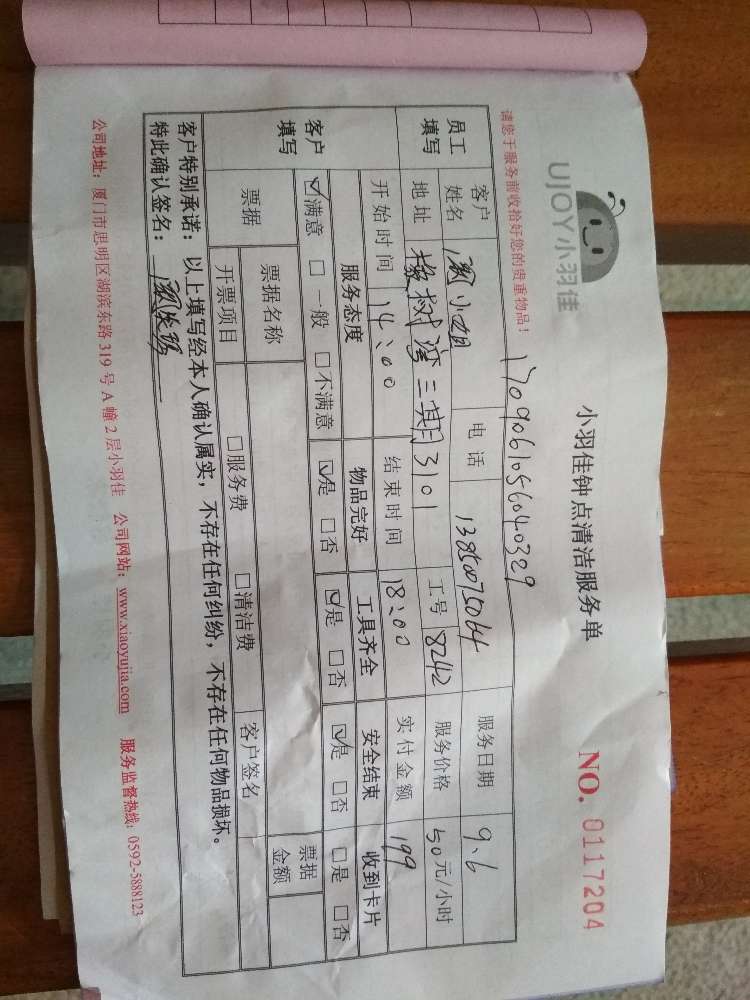 UJOY小羽佳
小羽佳钟点清洁服务单
NO. 0117204
请您于服务前收拾好您的贵重物品！
1709061056040329
员工填写
客户姓名 小姐 电话 服务日期 9.6
地址 橡树湾三期3101 工号 8242 服务价格 50元/小时
开始时间 14:00 结束时间 18:00 实付金额 199
客户填写
服务态度 物品完好 工具齐全 安全结束 收到卡片
☑满意 □一般 □不满意 ☑是 □否 ☑是 □否 ☑是 □否 □是 □否
票据 票据名称 客户签名 票据金额
开票项目 □服务费 □清洁费
客户特别承诺：以上填写经本人确认属实，不存在任何纠纷，不存在任何物品损坏。
特此确认签名：
公司地址：厦门市思明区湖滨东路319号A幢2层小羽佳 公司网站：www.xiaoyujia.com 服务监督热线：0592-5888123